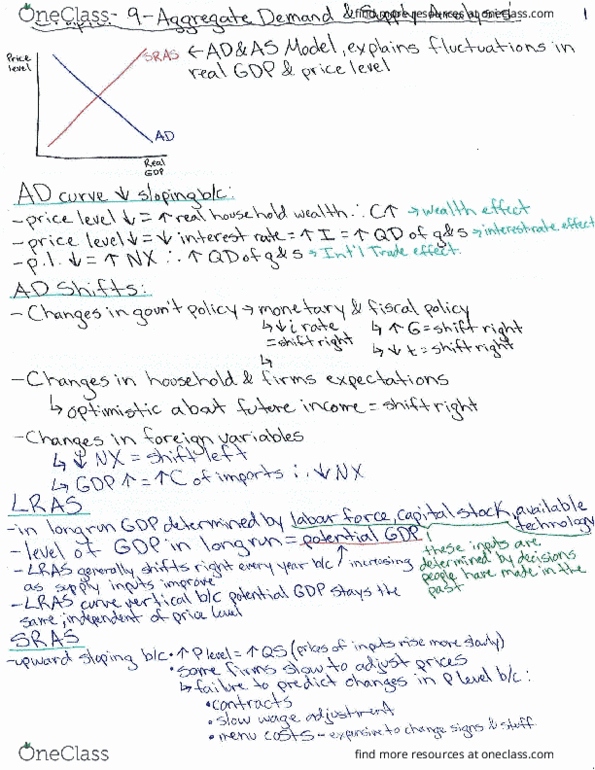 OneClass
find more resources at oneclass.com
- 9-Aggregate Demand &
1
Price level
SRAS
AD
Real GDP
← AD&AS Model, explains fluctuations in
real GDP & price level
AD curve ↓ sloping b/c:
- price level ↓ = ↑ real household wealth ∴ C↑ → wealth effect
- price level ↓ = ↓ interest rate = ↑ I = ↑ QD of g&s → interest rate effect
- p.l. ↓ = ↑ NX ∴ ↑ QD of g&s → Int'l Trade effect.
AD Shifts:
- Changes in gov't policy → monetary & fiscal policy
↳ ↓ i rate = shift right
↳
↳ ↑ G = shift right
↳ ↓ t = shift right
- Changes in household & firms expectations
↳ optimistic about future income = shift right
- Changes in foreign variables
↳ ↓ NX = shift left
↳ GDP ↑ = ↑ C of imports ∴ ↓ NX
LRAS
- in longrun GDP determined by labar force, capital stock, available technology
- level of GDP in longrun = potential GDP
these inputs are determined by decisions people have made in the past
- LRAS generally shifts right every year b/c ↑ increasing
as supply inputs improve
- LRAS curve vertical b/c potential GDP stays the
same, independent of price level
SRAS
- upward sloping b/c • ↑ P level = ↑ QS (prices of inputs rise more slowly)
• some firms slow to adjust prices
↳ failure to predict changes in P level b/c:
• contracts
• slow wage adjustment
• menu costs - expensive to change signs & stuff
OneClass
find more resources at oneclass.com